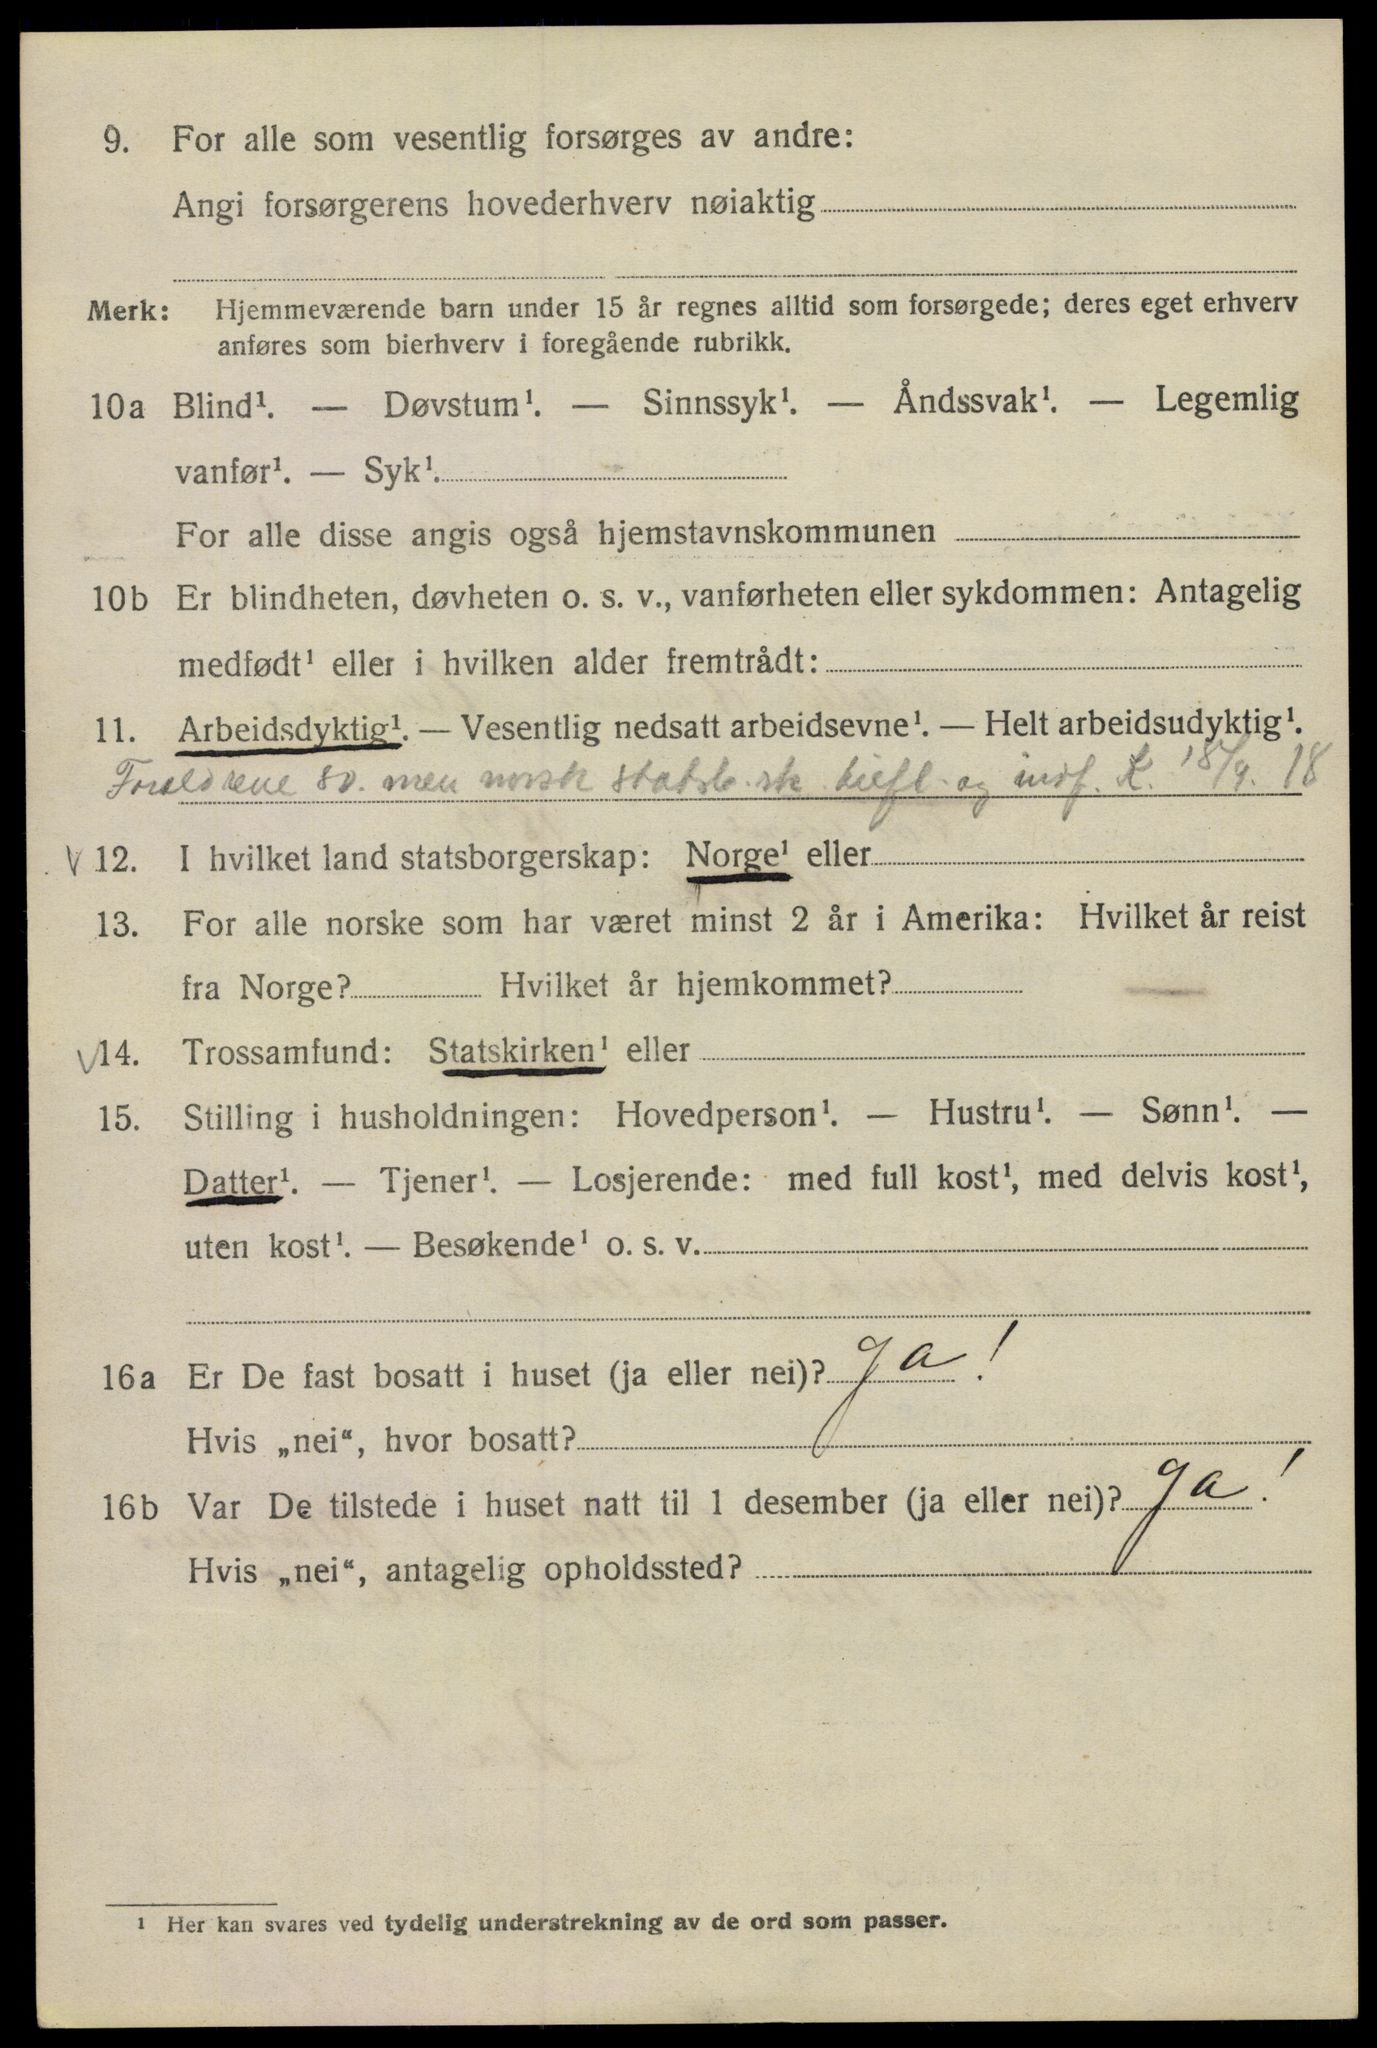 9. For alle som vesentlig forsørges av andre:
Angi forsørgerens hovederhverv nøiaktig
Merk: Hjemmeværende barn under 15 år regnes alltid som forsørgede; deres eget erhverv
anføres som bierhverv i foregående rubrikk.
10a Blind¹. — Døvstum¹. — Sinnssyk¹. — Åndssvak¹. — Legemlig
vanfør¹. — Syk¹.
For alle disse angis også hjemstavnskommunen
10b Er blindheten, døvheten o. s. v., vanførheten eller sykdommen: Antagelig
medfødt¹ eller i hvilken alder fremtrådt:
11. Arbeidsdyktig¹. — Vesentlig nedsatt arbeidsevne¹. — Helt arbeidsudyktig¹.
Foreldrene sv. men norsk statsb. og indf. K. 18/9. 18
V 12. I hvilket land statsborgerskap: Norge¹ eller
13. For alle norske som har været minst 2 år i Amerika: Hvilket år reist
fra Norge? Hvilket år hjemkommet?
V 14. Trossamfund: Statskirken¹ eller
15. Stilling i husholdningen: Hovedperson¹. — Hustru¹. — Sønn¹. —
Datter¹. — Tjener¹. — Losjerende: med full kost¹, med delvis kost¹,
uten kost¹. — Besøkende¹ o. s. v.
16a Er De fast bosatt i huset (ja eller nei)? Ja!
Hvis „nei“, hvor bosatt?
16b Var De tilstede i huset natt til 1 desember (ja eller nei)? Ja!
Hvis „nei“, antagelig opholdssted?
¹ Her kan svares ved tydelig understrekning av de ord som passer.